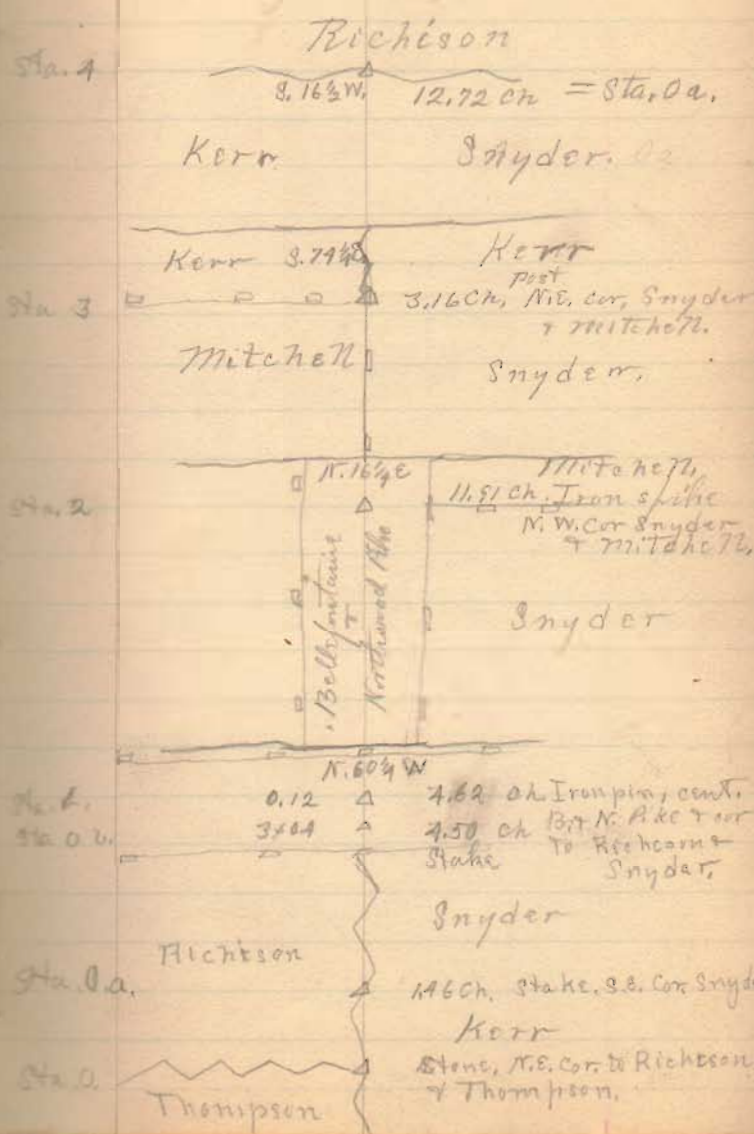 Richison
Sta. 4
S. 16½ W. 12.72 Ch = Sta. 0a.
Kerr Snyder.
Kerr S. 74¼ E Kerr
Post
Sta 3 3.16 Ch, N.E. cor, Snyder
& Mitchell.
Mitchell Snyder.
N. 16¼ E Mitchell,
Sta. 2 11.91 Ch. Iron spike
N.W. Cor Snyder
& Mitchell,
Bellefontaine
&
Northwood Pike
Snyder
N. 60¼ W
Sta. 1. 0.12 4.62 Ch Iron pin, cent.
Sta 0 b. 3.04 4.50 Ch B. & N. Pike & cor
Stake to Richison &
Snyder,
Snyder
Richison
Sta. 0.a. 1.46 Ch, Stake. S.E. Cor. Snyde
Kerr
Sta. 0. Stone, N.E. Cor. to Richison
& Thompson.
Thompson